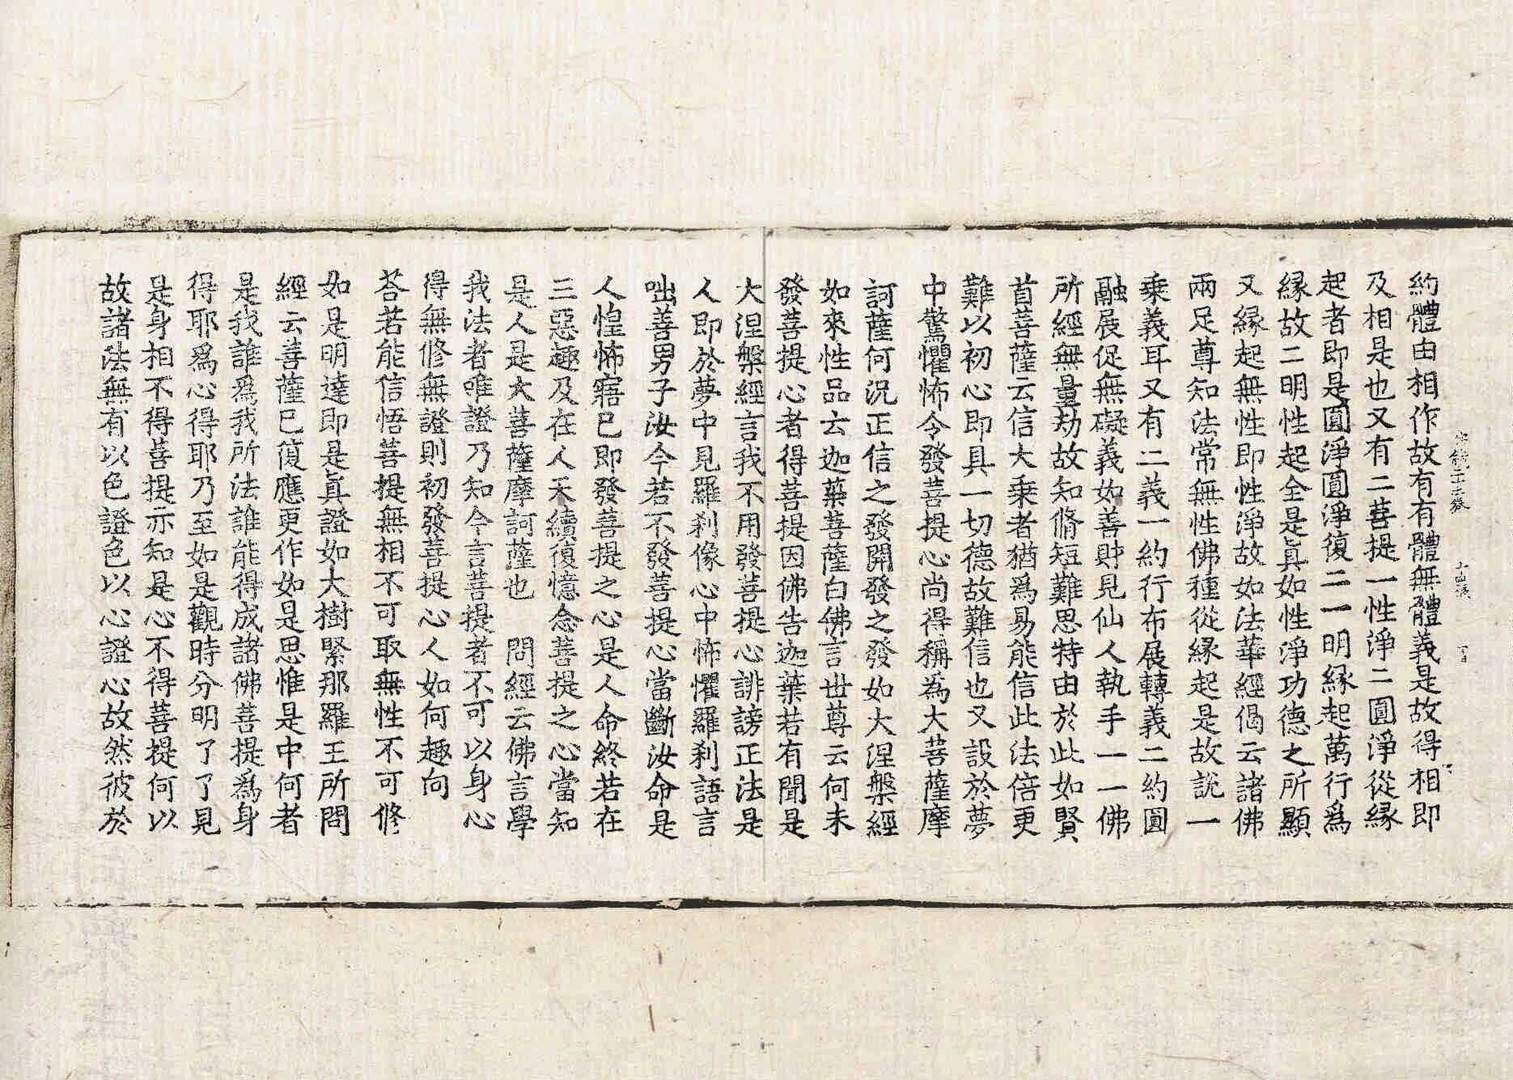 約體由相作故有有體無體義是故得相即
及相是也又有二菩提一性淨二圓淨從緣
起者即是圓淨圓淨復二一明緣起萬行爲
緣故二明性起全是真如性淨功德之所顯
又緣起無性即性淨故如法華經偈云諸佛
兩足尊知法常無性佛種從緣起是故說一
乘義耳又有二義一約行布展轉義二約圓
融展促無礙義如善財見仙人執手一一佛
所經無量劫故知脩短難思特由於此如賢
首菩薩云信大乘者猶爲易能信此法倍更
難以初心即具一切德故難信也又設於夢
中驚懼怖令發菩提心尚得稱為大菩薩摩
訶薩何況正信之發開發之發如大涅槃經
如來性品云迦葉菩薩白佛言世尊云何未
發菩提心者得菩提因佛告迦葉若有聞是
大涅槃經言我不用發菩提心誹謗正法是
人即於夢中見羅剎像心中怖懼羅剎語言
咄善男子汝今若不發菩提心當斷汝命是
人惶怖寤已即發菩提之心是人命終若在
三惡趣及在人天續復憶念菩提之心當知
是人是大菩薩摩訶薩也　問經云佛言學
我法者唯證乃知今言菩提者不可以身心
得無修無證則初發菩提心人如何趣向
荅若能信悟菩提無相不可取無性不可修
如是明達即是真證如大樹緊那羅王所問
經云菩薩已復應更作如是思惟是中何者
是我誰爲我所法誰能得成諸佛菩提爲身
得耶爲心得耶乃至如是觀時分明了了見
是身相不得菩提亦知是心不得菩提何以
故諸法無有以色證色以心證心故然彼於